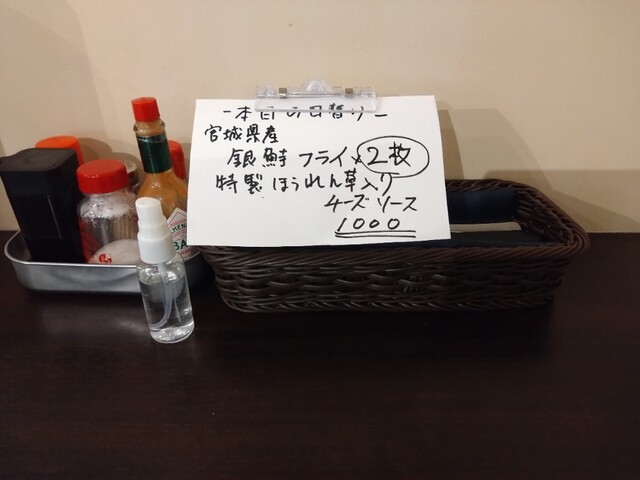 -本日の日替り-
宮城県産
銀鮭フライ×2枚
特製ほうれん草入り
チーズソース
1000